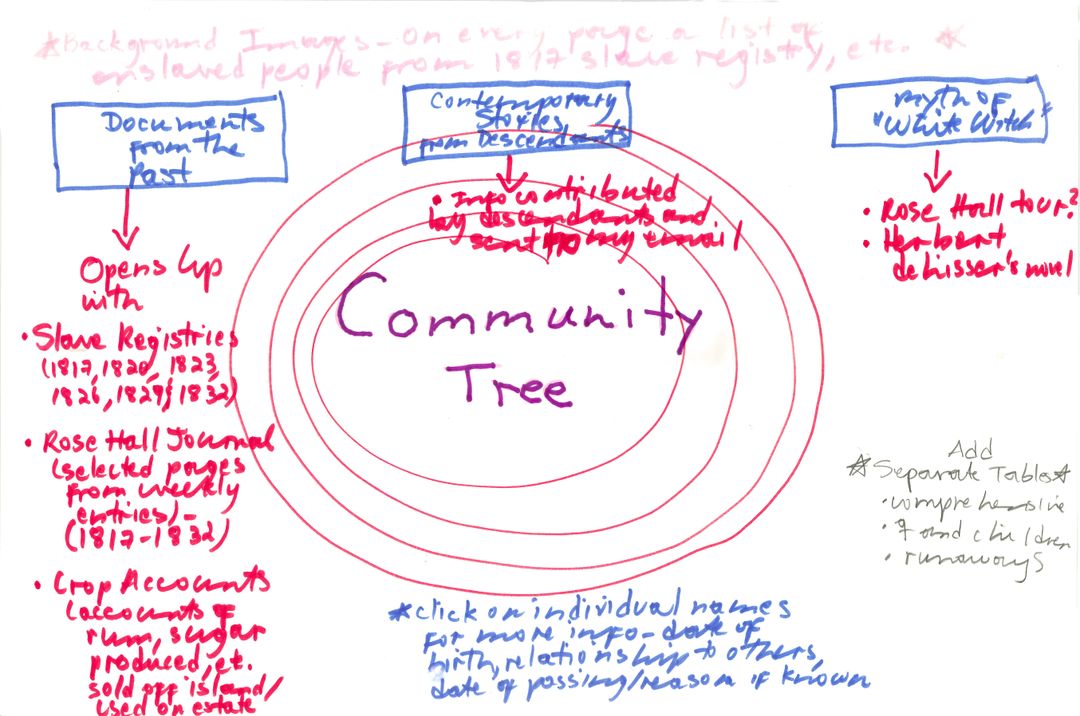 *Background Images - On every page a list of
enslaved people from 1817 slave registry, etc. *
Documents
from the
Past
Opens Up
with
• Slave Registries
(1817, 1820, 1823,
1826, 1829, 1832)
• Rose Hall Journal
(selected pages
from weekly
entries) -
(1817-1832)
• Crop Accounts
(accounts of
rum, sugar
produced, etc.
sold off island/
used on estate
Contemporary
Stories
from Descendants
• Info contributed
by descendants and
sent to my email
Community
Tree
*click on individual names
for more info - date of
birth, relationship to others,
date of passing/reason if known
Myth of
"White Witch"
• Rose Hall tour?
• Herbert
deLisser's novel
Add
*Separate Tables*
• comprehensive
• and children
• runaways